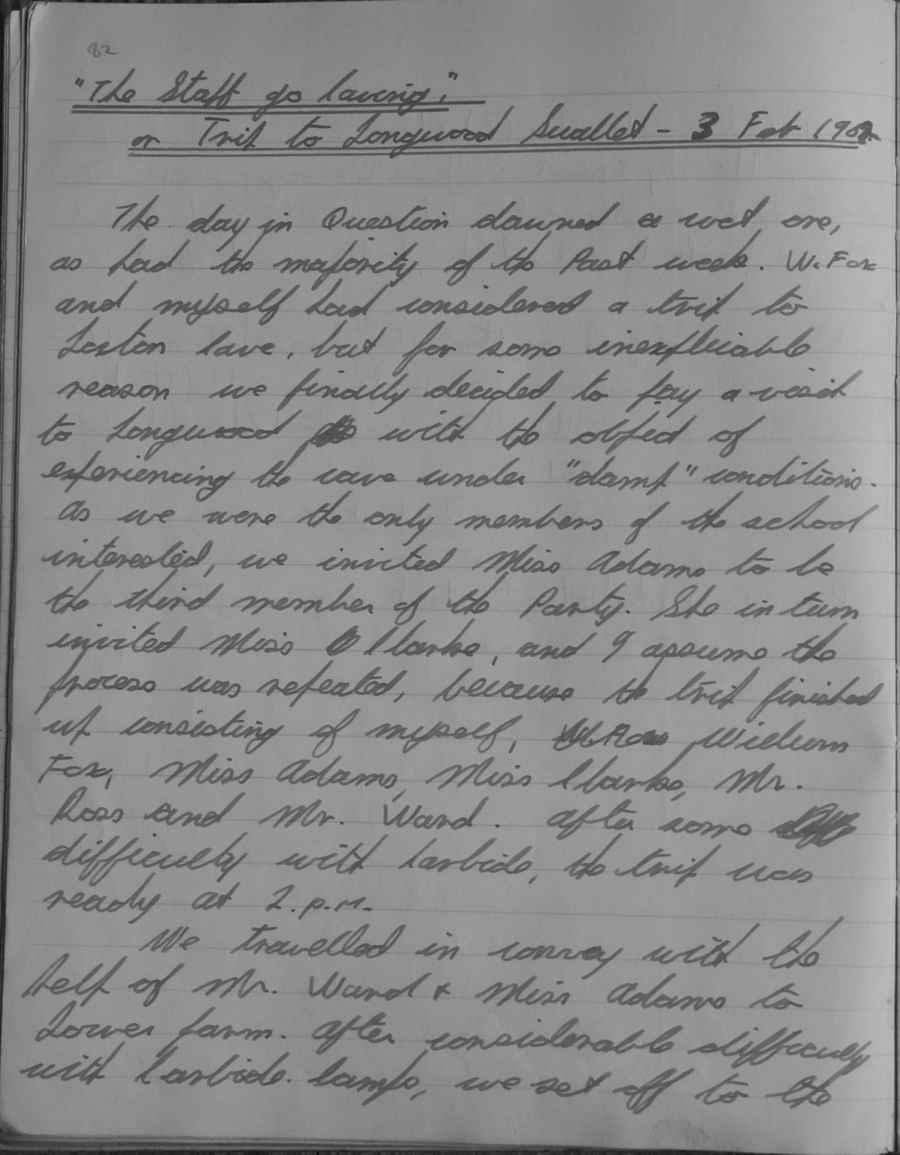 82
"The Staff go Caving."
or Trip to Longwood Swallet - 3 Feb
The day in Question dawned a wet one,
as had the majority of the Past week. W. Fox
and myself had considered a trip to
Loxton Cave, but for some inexplicable
reason we finally decided to pay a visit
to Longwood with the object of
experiencing the cave under "damp" conditions.
As we were the only members of the school
interested, we invited Miss Adams to be
the third member of the Party. She in turn
invited Miss Clarke, and I assume the
process was repeated, because the trip finished
up consisting of myself, William
Fox, Miss Adams, Miss Clarke, Mr.
Ross and Mr. Ward. After some
difficulty with Carbide, the trip was
ready at 2.p.m.
We travelled in convoy with the
help of Mr. Ward & Miss Adams to
Lower farm. After considerable difficulty
with Carbide lamps, we set off to the